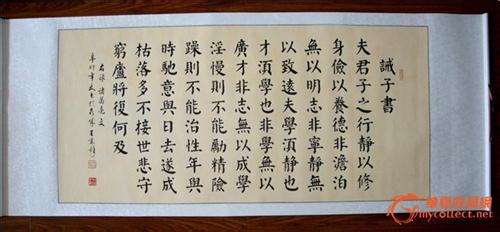 誡子書
夫君子之行靜以修
身儉以養德非澹泊
無以明志非寧靜無
以致遠夫學湏靜也
才湏學也非學無以
廣才非志無以成學
淫慢則不能勵精險
躁則不能治性年與
時馳意與日去遂成
枯落多不接世悲守
窮廬將復何及
右錄諸葛亮文
辛卯年
華夏收藏網
mycollect.net